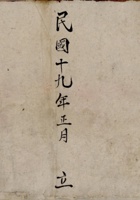 民國十九年正月 立